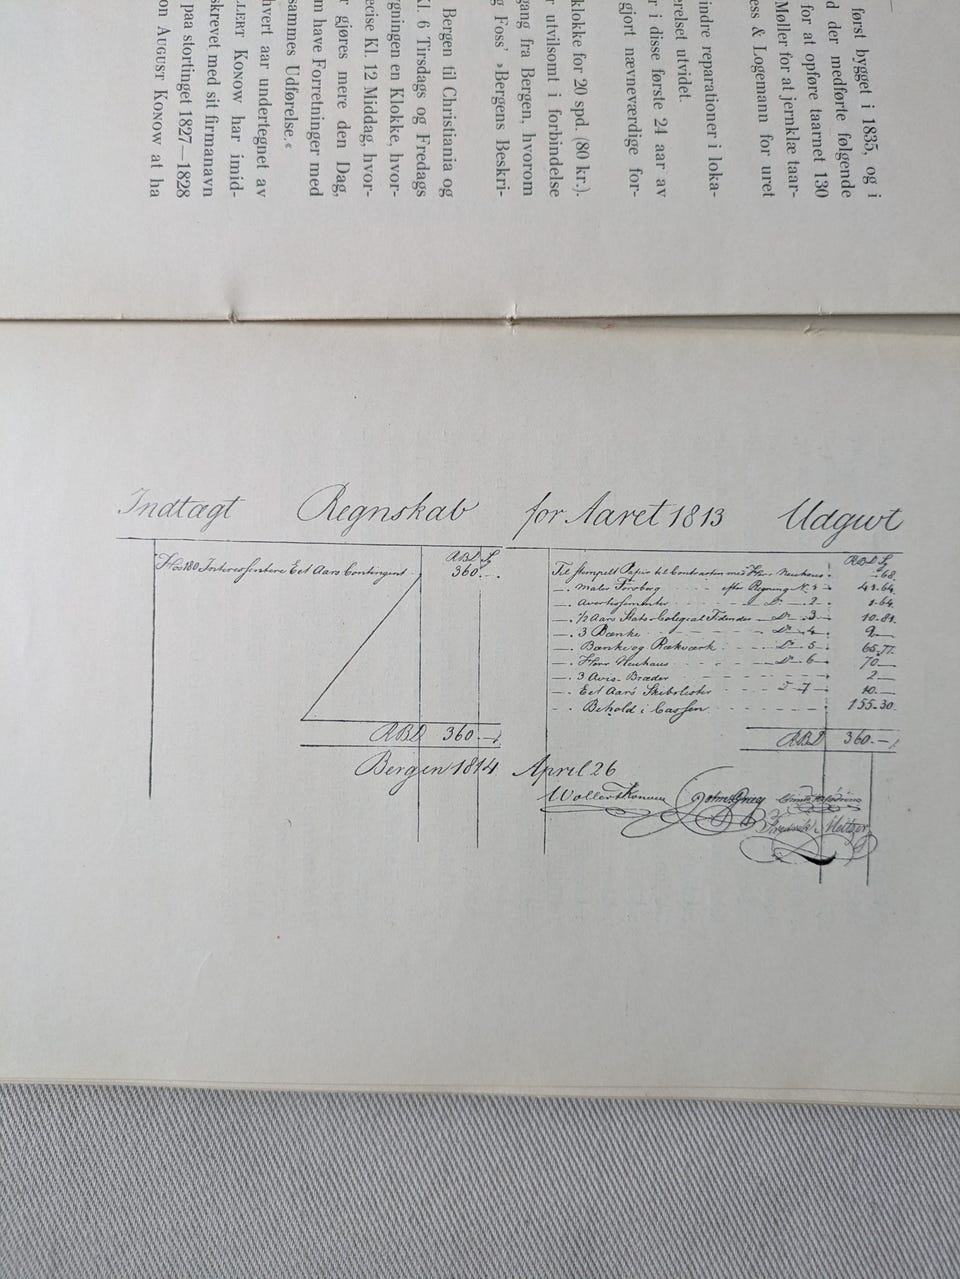 først bygget i 1835, og i
d der medførte følgende
for at opføre taarnet 130
Møller for at jernklæ taar-
ess & Logemann for uret
indre reparationer i loka-
erelset utvidet.
r i disse første 24 aar av
gjort nævneværdige for-
klokke for 20 spd. (80 kr.).
r utvilsomt i forbindelse
gang fra Bergen, hvorom
g Foss' »Bergens Beskri-
Bergen til Christiania og
Kl. 6 Tirsdags og Fredags
rgningen en Klokke, hvor-
ecise Kl. 12 Middag, hvor-
r gjøres mere den Dag,
m have Forretninger med
sammes Udførelse.«
hvert aar undertegnet av
LLERT KONOW har imid-
skrevet med sit firmanavn
paa stortinget 1827—1828
on AUGUST KONOW at ha
Indtægt Regnskab for Aaret 1813 Udgivt
RBD ß
Hos 180 Interessentere Eet Aars Contingent 360.–.
RBD 360.–
RBD ß
Til stemplet Papiir til Contracten med Herr Neuhaus 68.
–. Maler Forsberg efter Regning N. 1 43.64.
–. Avertissementer Do 2 1.64.
–. ½ Aars Stats-Colegial Tidender Do 3 10.81.
–. 3 Bænke Do 4
–. Bænk og Rækværk Do 5 65.77.
–. Herr Neuhaus Do 6 70
–. 3 Avis-Bræder 2
–. Eet Aars Skibslister Do 7 10.
Behold i Cassen 155.30.
RBD 360.–
Bergen 1814 April 26
Wollert Konow John Grieg
Fredrik Meltzer